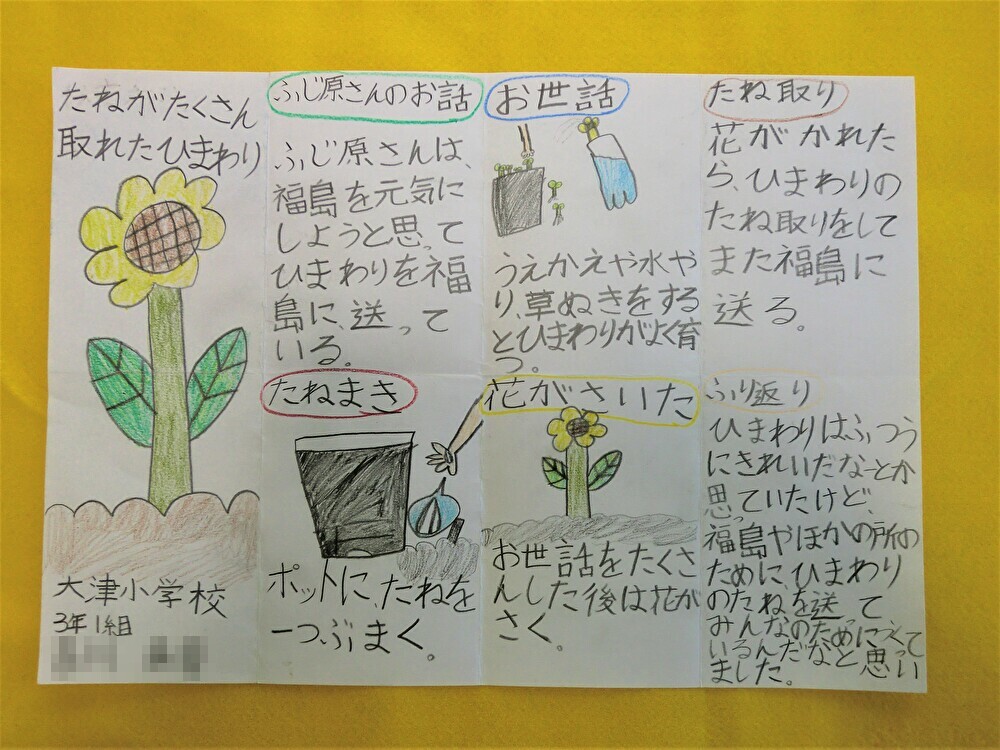 たねがたくさん
取れたひまわり
大津小学校
3年1組
ふじ原さんのお話
ふじ原さんは、
福島を元気に
しようと思って
ひまわりを福
島に、送って
いる。
たねまき
ポットに、たねを
一つぶまく。
お世話
うえかえや水や
り、草ぬきをする
とひまわりがよく育
つ。
花がさいた
お世話をたくさ
んした後は花が
さく。
たね取り
花がかれた
ら、ひまわりの
たね取りをして
また福島に
送る。
ふり返り
ひまわりはふつう
にきれいだなとか
思っていたけど、
福島やほかの所の
ために、ひまわり
のたねを送って
みんなのために
いるんだなと思い
ました。